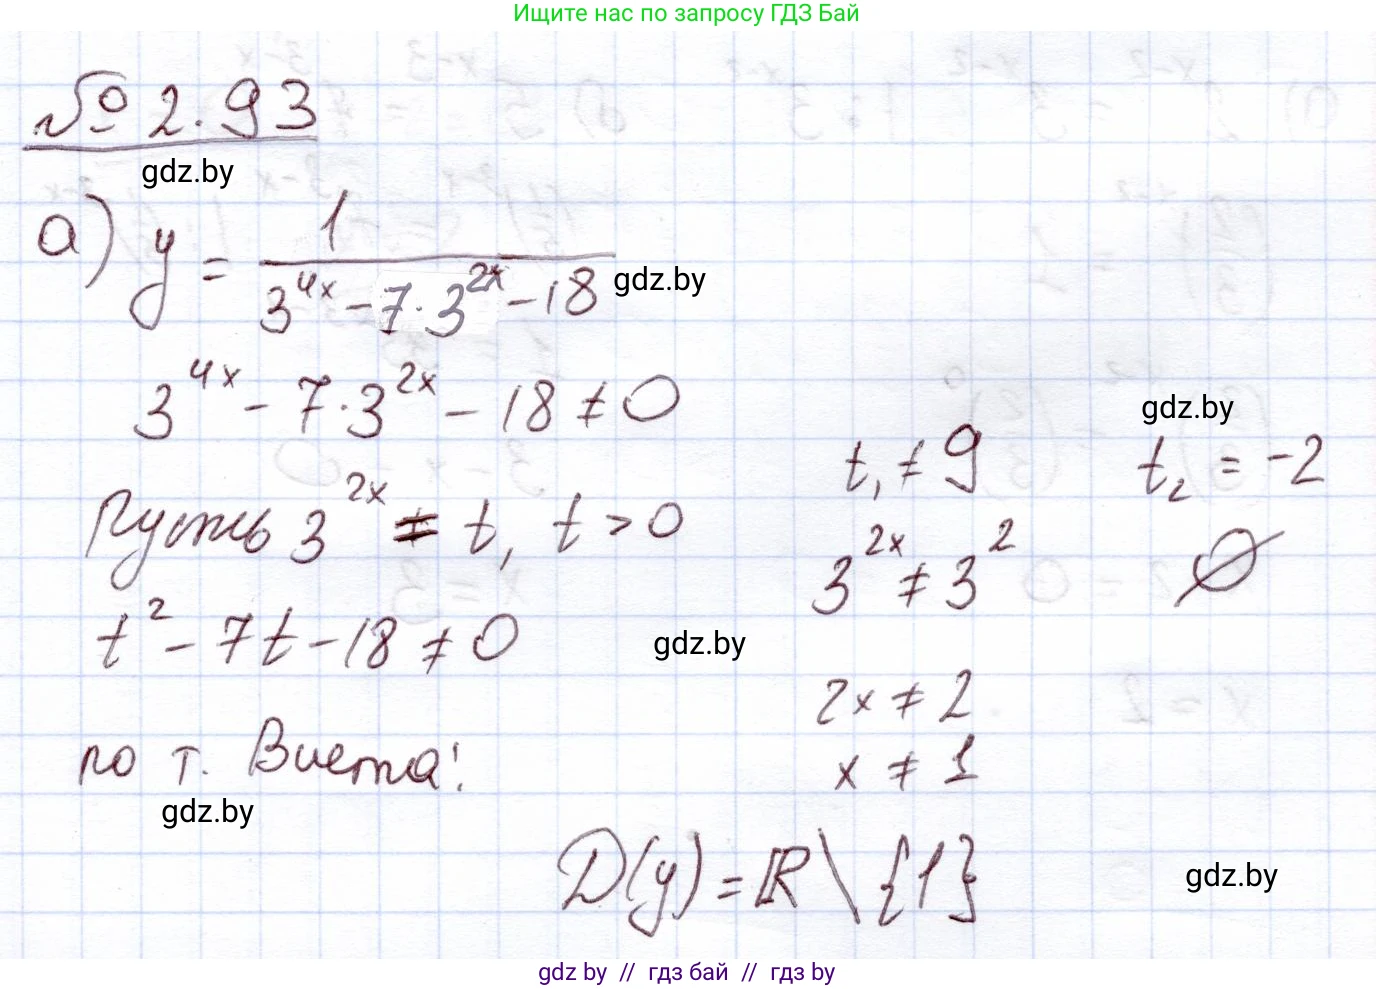 Ищите нас по запросу ГДЗ Бай
№ 2.93
gdz.by
а) y = 1 / (3^{4x} − 7·3^{2x} − 18)
gdz.by
3^{4x} − 7·3^{2x} − 18 ≠ 0
gdz.by
Пусть 3^{2x} = t, t > 0
t² − 7t − 18 ≠ 0
gdz.by
по т. Виета:
gdz.by
t₁ ≠ 9 t₂ = −2
3^{2x} ≠ 3² ∅
2x ≠ 2
x ≠ 1
D(y) = ℝ \ {1}
gdz.by
gdz by // гдз бай // гдз by